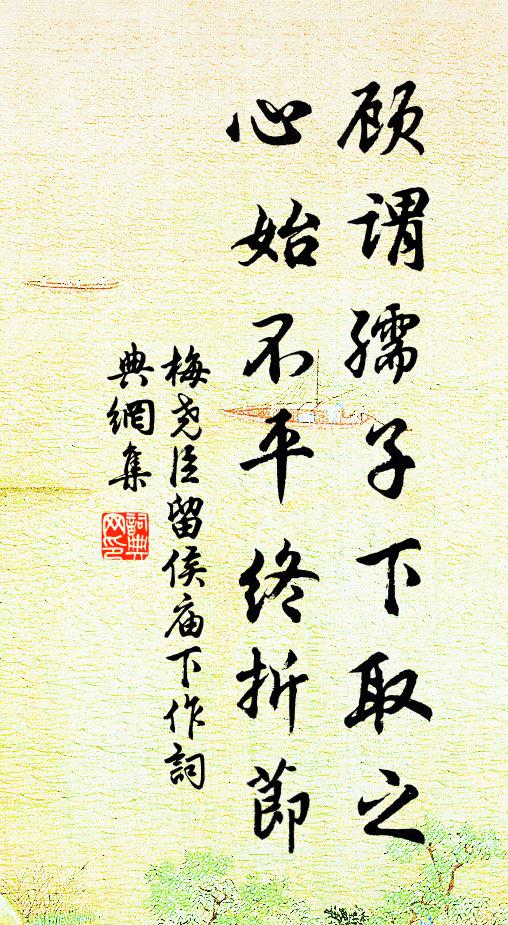 顾谓孺子下取之
心始不平终折節
梅尧臣留侯庙下作詞
典網集
詞典
网印